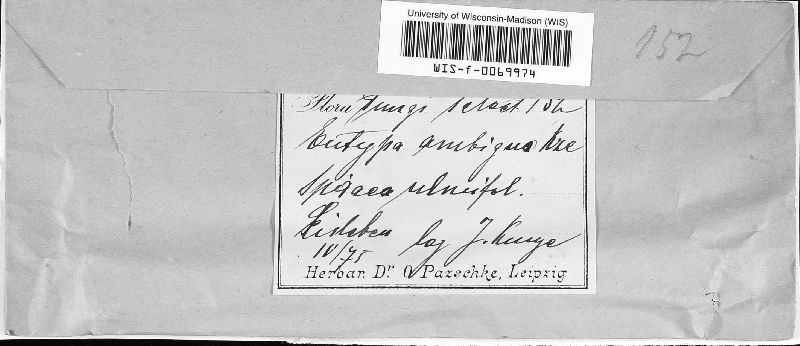 University of Wisconsin-Madison (WIS)
WIS-f-0069974
152
Flora Fungi select 152
Eutypa ambigua Kze
Spiraea ulmifol.
Eisleben leg J. Kunze
10/75
Herbar. Dr. O. Pazschke, Leipzig